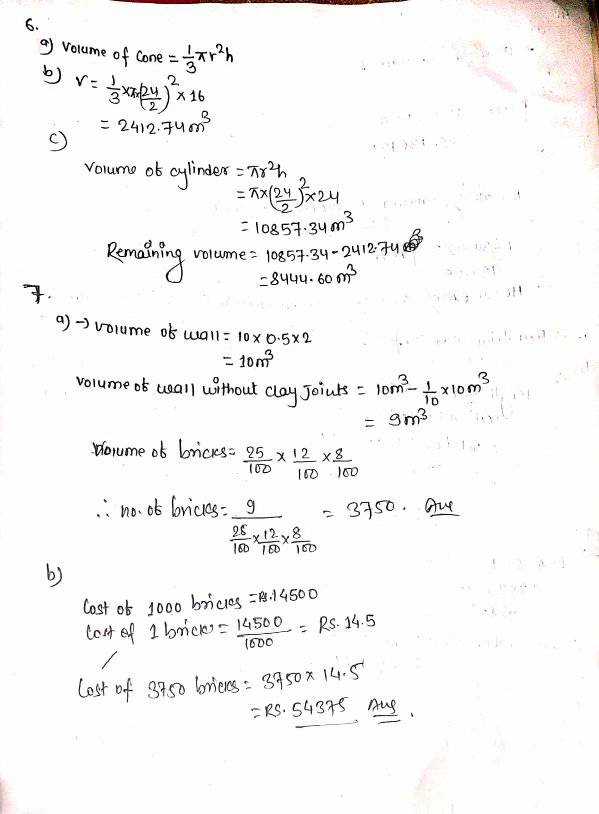 6.
a) Volume of Cone = 1/3 πr²h
b) V = 1/3 × π × (24/2)² × 16
= 2412.74 m³
c)
Volume of cylinder = πr²h
= π × (24/2)² × 24
= 10857.34 m³
Remaining volume = 10857.34 - 2412.74
= 8444.60 m³
7.
a) → Volume of wall = 10 × 0.5 × 2
= 10 m³
Volume of wall without clay Joints = 10m³ - 1/10 × 10 m³
= 9m³
Volume of bricks = 25/100 × 12/100 × 8/100
∴ no. of bricks = 9 / (25/100 × 12/100 × 8/100) = 3750. Ans
b)
Cost of 1000 bricks = Rs. 14500
Cost of 1 brick = 14500/1000 = Rs. 14.5
Cost of 3750 bricks = 3750 × 14.5
= RS. 54375 Ans.